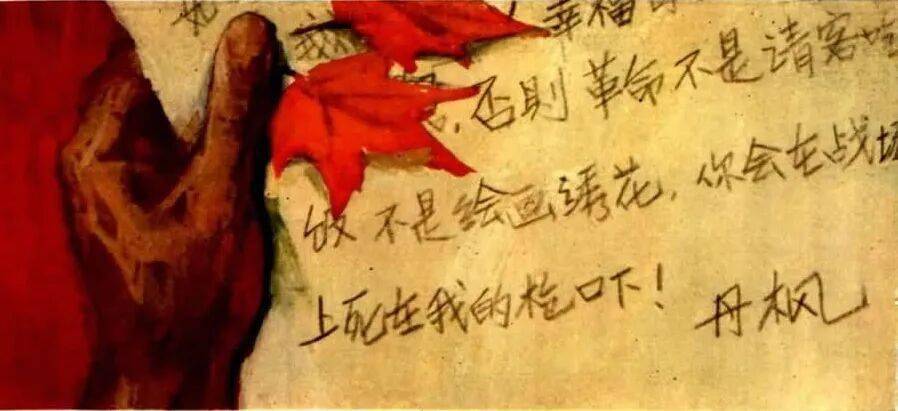 我
幸福
，否则革命不是请客吃
饭不是绘画绣花，你会在战场
上死在我的枪口下！ 丹枫